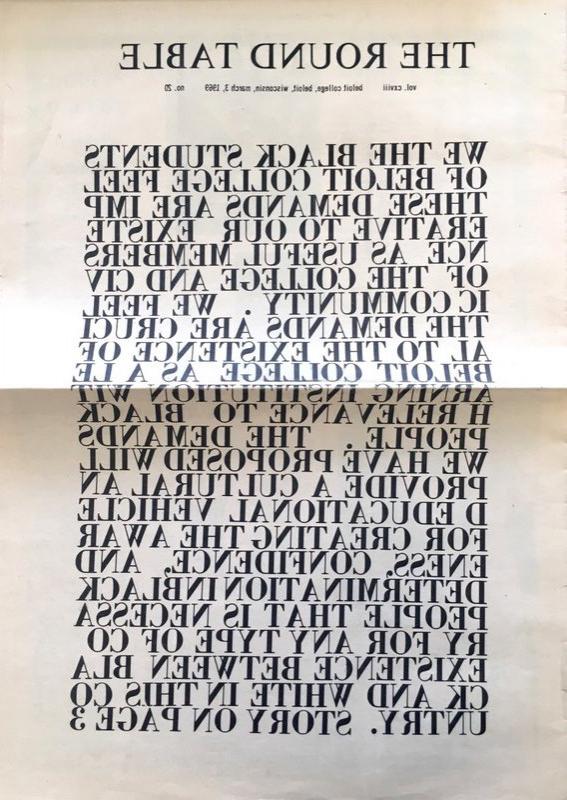 THE ROUND TABLE
vol. cxviii beloit college, beloit, wisconsin, march 3, 1969 no. 20
WE THE BLACK STUDENTS
OF BELOIT COLLEGE FEEL
THESE DEMANDS ARE IMP
ERATIVE TO OUR EXISTE
NCE AS USEFUL MEMBERS
OF THE COLLEGE AND CIV
IC COMMUNITY . WE FEEL
THE DEMANDS ARE CRUCI
AL TO THE EXISTENCE OF
BELOIT COLLEGE AS A LE
ARNING INSTITUTION WIT
H RELEVANCE TO BLACK
PEOPLE . THE DEMANDS
WE HAVE PROPOSED WILL
PROVIDE A CULTURAL AN
D EDUCATIONAL VEHICLE
FOR CREATING THE AWAR
ENESS, CONFIDENCE, AND
DETERMINATION IN BLACK
PEOPLE THAT IS NECESSA
RY FOR ANY TYPE OF CO
EXISTENCE BETWEEN BLA
CK AND WHITE IN THIS CO
UNTRY. STORY ON PAGE 3